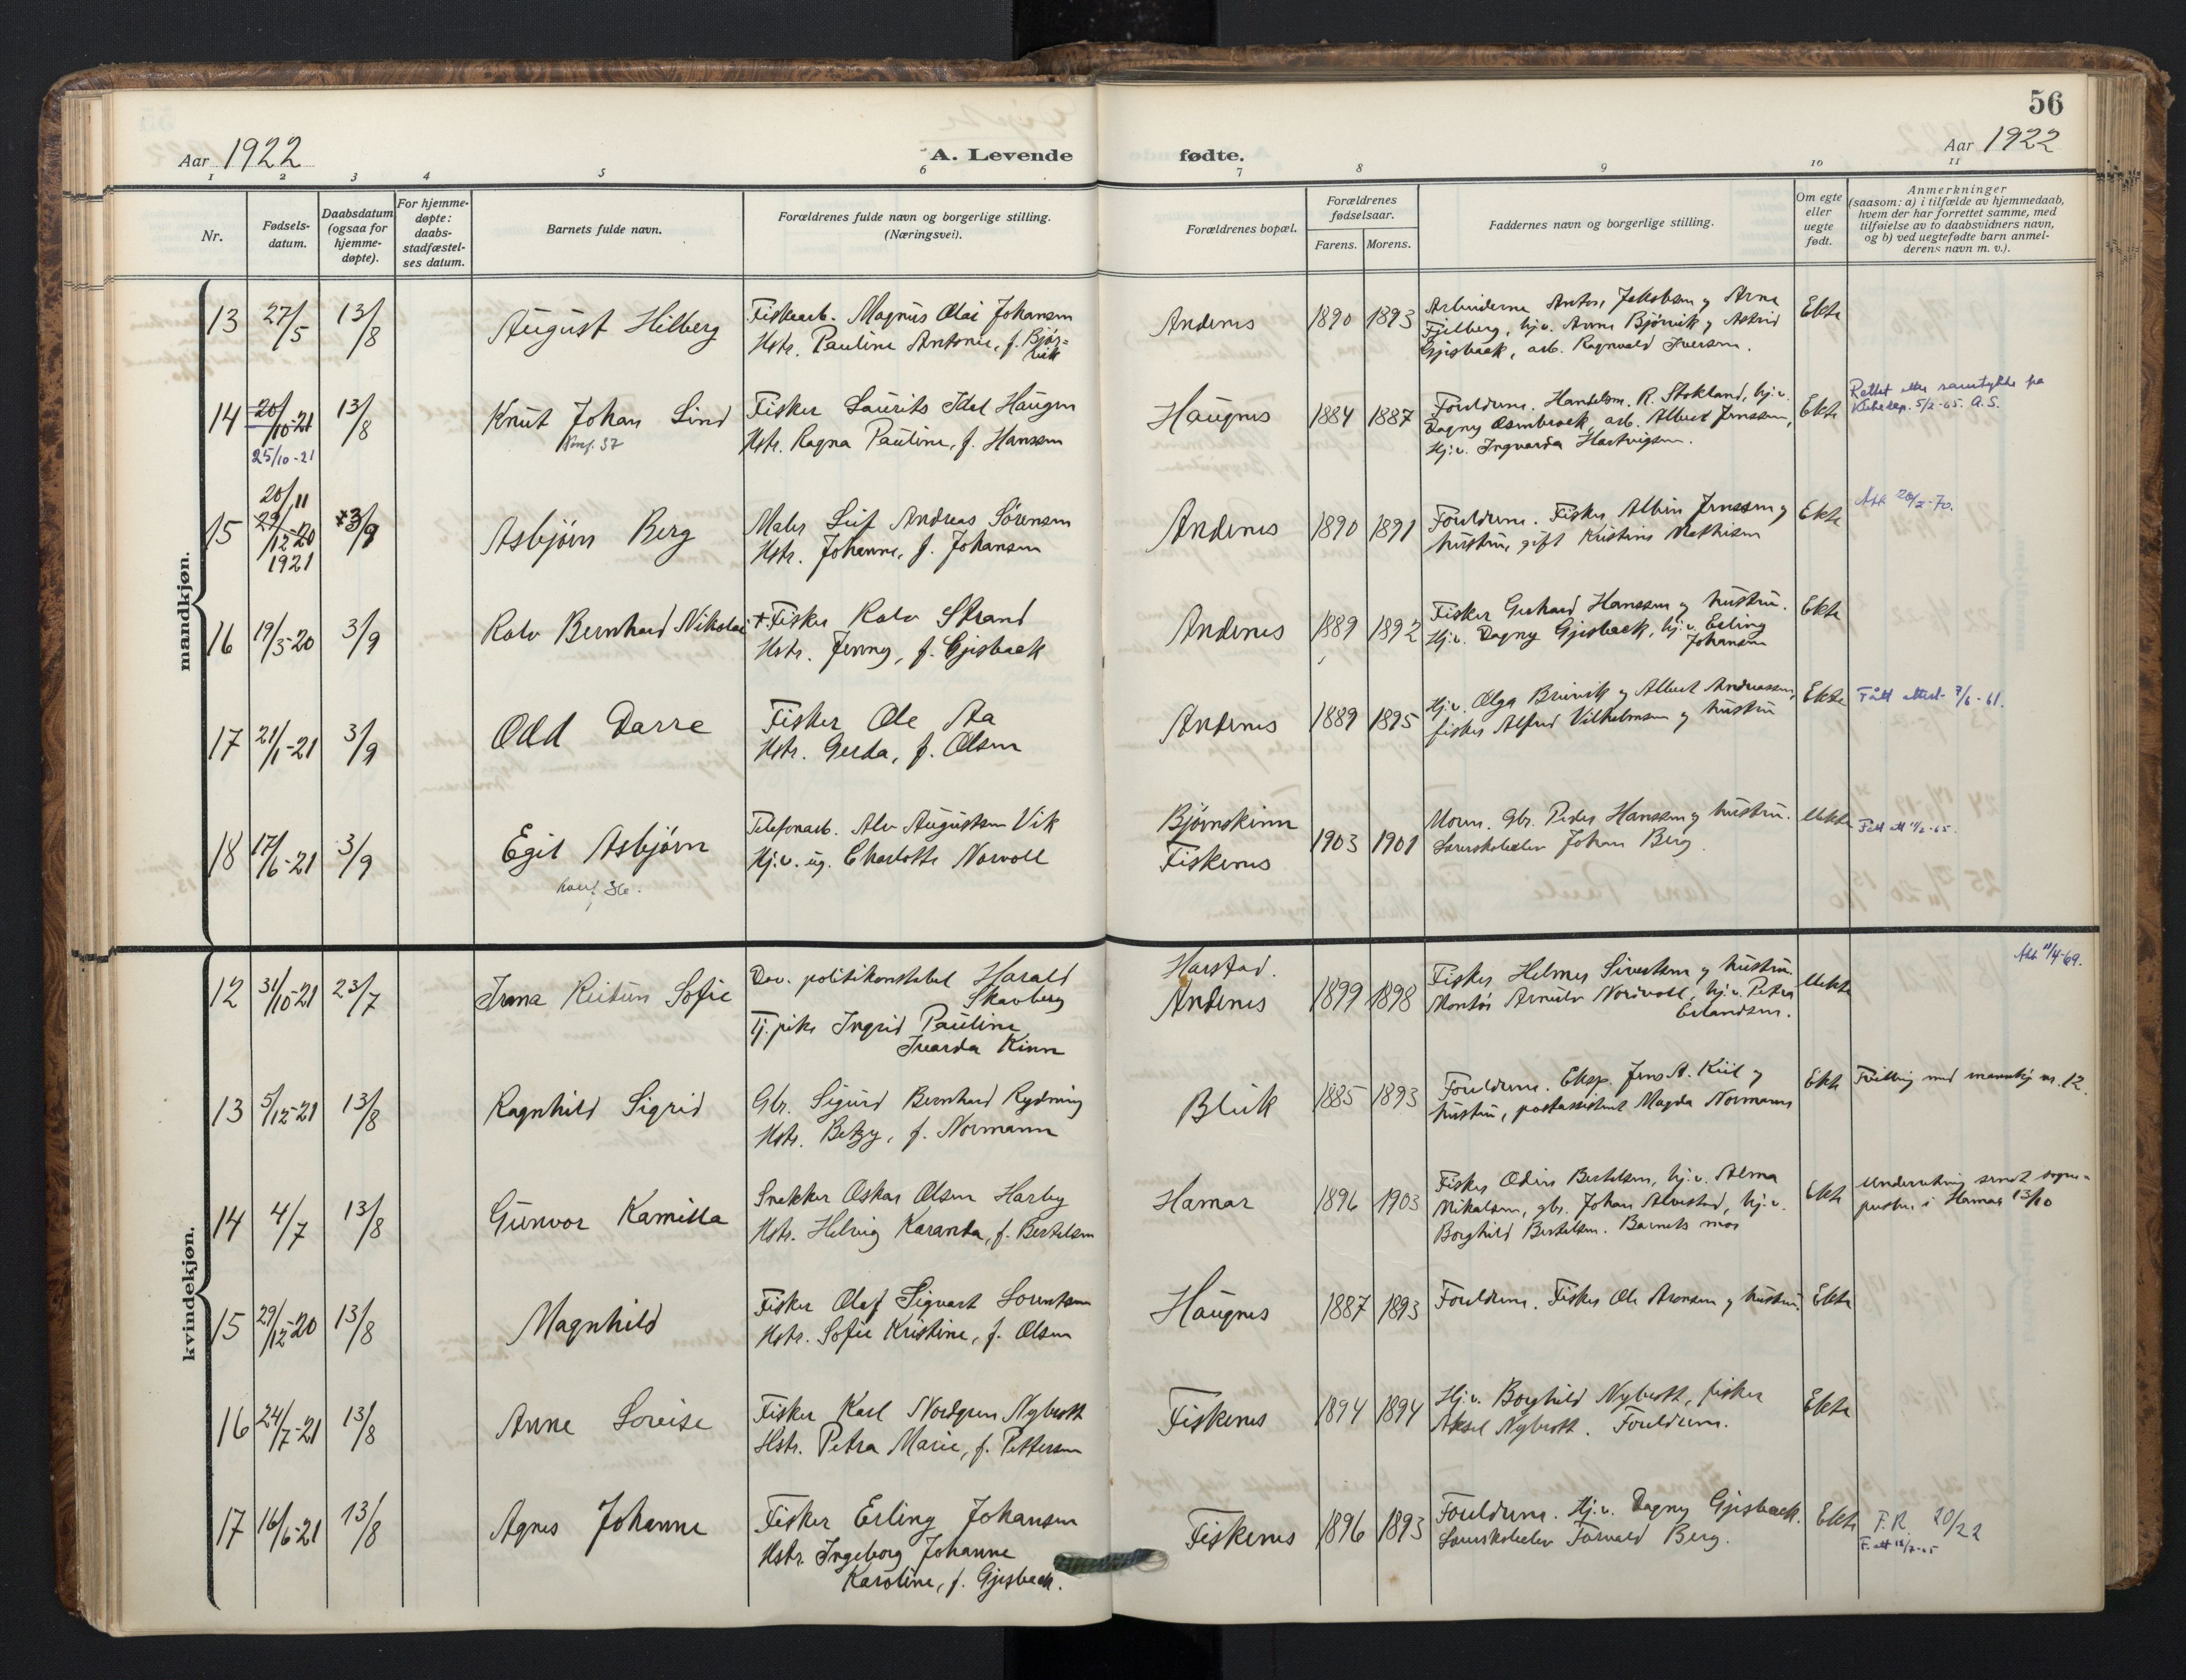 56
Aar 1922
A. Levende
fødte.
Aar 1922
1 2 3 4 5 6 7 8 9 10 11
Nr.
Fødsels-
datum.
Daabsdatum
(ogsaa for
hjemme-
døpte).
For hjemme-
døpte:
daabs-
stadfæstel-
ses datum.
Barnets fulde navn.
Forældrenes fulde navn og borgerlige stilling.
(Næringsvei).
Forældrenes bopæl.
Forældrenes
fødselsaar.
Farens. Morens.
Faddernes navn og borgerlige stilling.
Om egte
eller
uegte
født.
Anmerkninger
(saasom: a) i tilfælde av hjemmedaab,
hvem der har forrettet samme, med
tilføielse av to daabsvidners navn,
og b) ved uegtefødte barn anmel-
derens navn m. v.).
mandkjøn.
13 27/5 13/8 August Hilberg
Fiskearb. Magnus Olai Johansen
Hstr. Pauline Antonie, f. Bjør-
vik
Andenes 1890 1893
Arbeiderne Anton Jakobsen og Arne
Fjelberg, hj.v. Anna Bjørvik og Astrid
Gjesbaek, arb. Ragnvald Iversen.
Ekte
14 20/10-21 13/8 Knut Johan Lind
25/10-21
Konf. 37
Fisker Laurits Idel Haugen
Hstr. Ragna Pauline, f. Hanssen
Haugnes 1884 1887
Foreldrene. Handelsm. R. Stokland, hj.v.
Dagny Osenbroek, arb. Albert Jenssen,
Hj.v. Ingvarda Hartvigsen.
Ekte
Rettet etter samtykke fra
Kirkedep. 5/2-65. A.S.
20/11
15 29/12-20 3/9 Asbjørn Berg
1921
Maler Leif Andreas Sørensen
Hstr. Johanne, f. Johansen
Andenes 1890 1891
Foreldrene. Fisker Albin Jenssen og
hustru, gift Kristine Mathisen
Ekte
Att 20/2-70.
16 19/3-20 3/9 Rolv Bernhard Nikolai
+ Fisker Rolv Strand
Hstr. Jenny, f. Gjesbaek
Andenes 1889 1892
Fisker Gerhard Hanssen og hustru.
Hj.v. Dagny Gjesbaek, hj.v. Erling
Johansen
Ekte
17 21/1-21 3/9 Odd Darre
Fisker Ole Aa
Hstr. Gerda, f. Olsen
Andenes 1889 1895
Hj.v. Olga Breivik og Albert Andreassen,
fisker Alfred Vilhelmsen og hustru
Ekte
Fått attest 7/6-61.
18 17/6-21 3/9 Egil Asbjørn
konf. 36.
Telefonarb. Alv Augustsen Vik
Hj.v. ug. Charlotte Norvoll
Bjørnskinn
Fiskenes
1903 1901
Moren. Gbr. Peder Hanssen og hustru.
Lærerskoleelev Johan Berg.
Uekte
kvindekjøn.
12 31/10-21 23/7 Irma Reidun Sofie
Dav. politikonstabel Harald
Skavberg
Tj.pike Ingrid Pauline
Ivarda Kinn
Harstad.
Andenes
1899 1898
Fisker Helmer Sivertsen og hustru.
Montør Arnulv Norvoll, hj.v. Petra
Erlandsen.
Uekte
Att 11/4-69.
13 5/12-21 13/8 Ragnhild Sigrid
Gbr. Sigurd Bernhard Rydning
Hstr. Betzy, f. Normann
Bleik 1885 1893
Foreldrene. Eksp. Jens A. Kiil og
hustru, postassistent Magda Normann
Ekte
Tvilling med mannkj nr. 12.
14 4/7 13/8 Gunvor Kamilla
Snekker Oskar Olsen Harby
Hstr. Helvig Karanda, f. Bertelsen
Hamar 1896 1903
Fisker Odin Bertelsen, hj.v. Alma
Nikalsen, gbr. Johan Alvestad, hj.v.
Borghild Bertelsen. Barnets mor
Ekte
Underretning sendt sogne-
presten i Hamar 13/10
15 29/12-20 13/8 Magnhild
Fisker Olaf Sigvart Lorentsen
Hstr. Sofie Kristine, f. Olsen
Haugnes 1887 1893
Foreldrene. Fisker Ole Aronsen og hustru.
Ekte
16 24/7-21 13/8 Anne Lovise
Fisker Karl Nordgren Nybrott
Hstr. Petra Marie, f. Pettersen
Fiskenes 1894 1894
Hj.v. Borghild Nybrott, fisker
Aksel Nybrott. Foreldrene.
Ekte
17 16/6-21 13/8 Agnes Johanne
Fisker Erling Johansen
Hstr. Ingeborg Johanne
Karoline, f. Gjesbaek.
Fiskenes 1896 1893
Foreldrene. Hj.v. Dagny Gjesbaek.
Lærerskoleelev Torvald Berg.
Ekte
F.R. 20/22